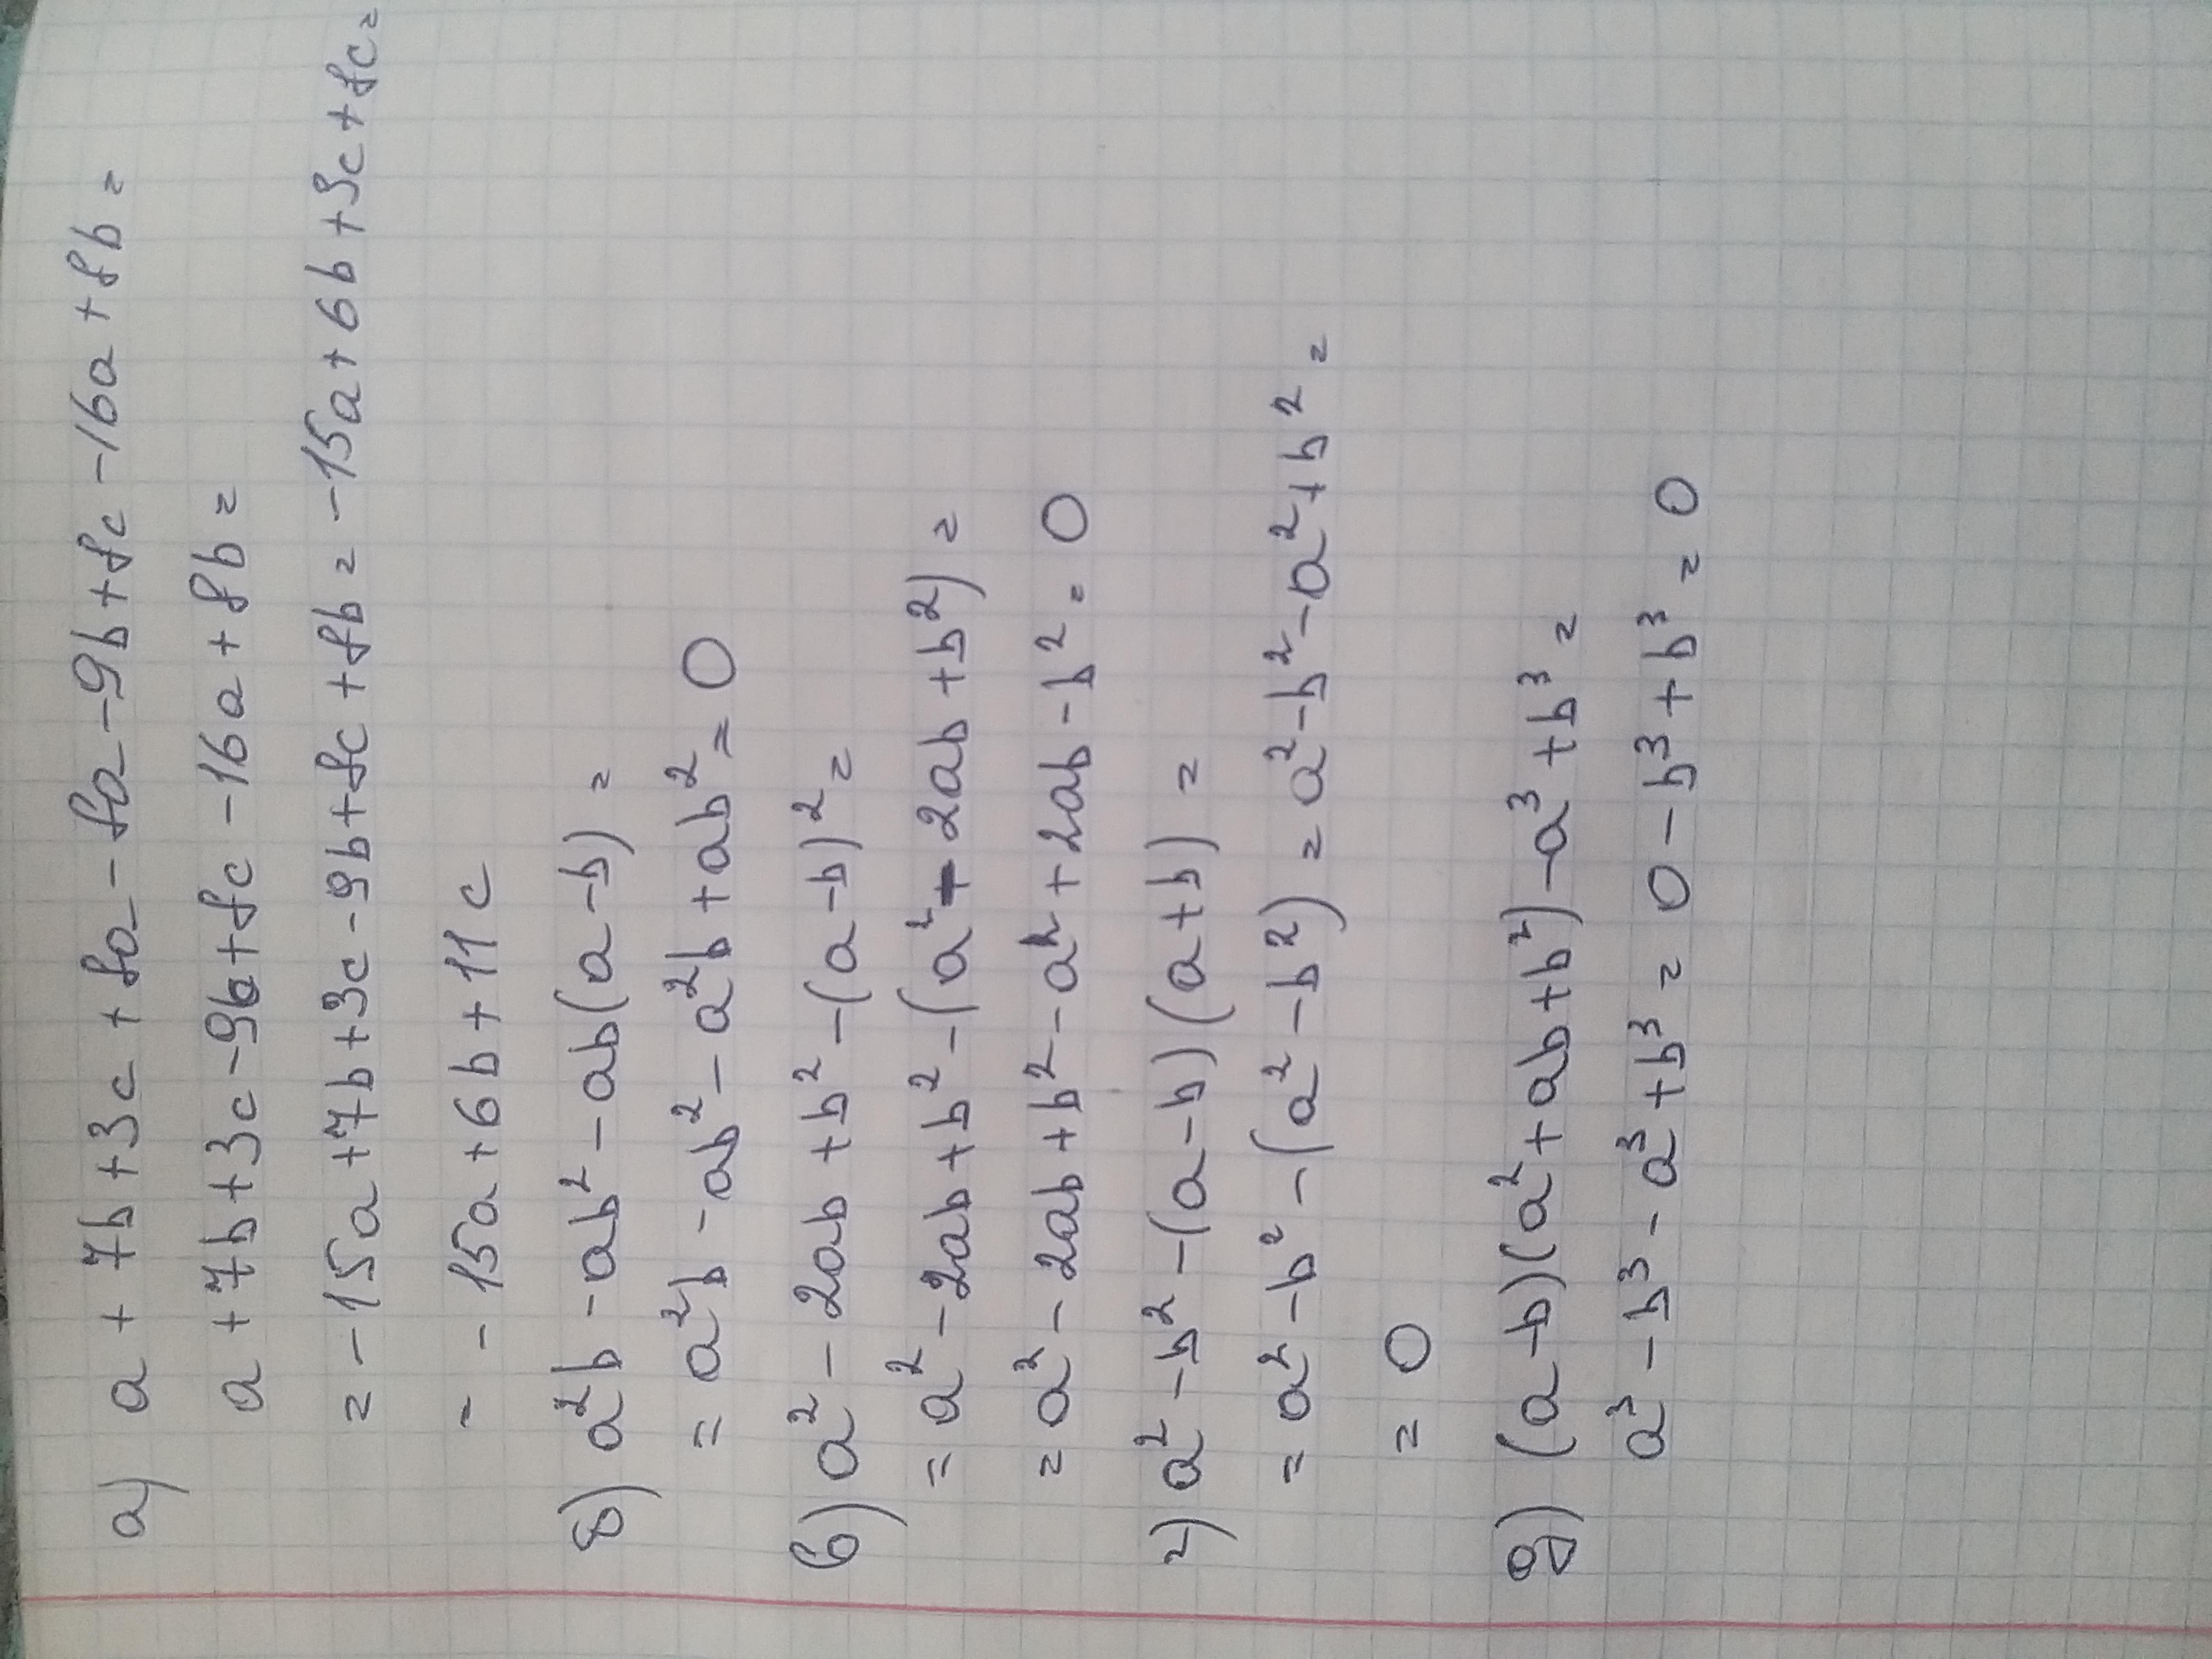 а) a + 7b + 3c + 8a - 8a - 9b + 8c - 16a + 8b =
a + 7b + 3c - 9b + 8c - 16a + 8b =
= -15a + 7b + 3c - 9b + 8c + 8b = -15a + 6b + 3c + 8c =
= -15a + 6b + 11c
б) a²b - ab² - ab(a - b) =
= a²b - ab² - a²b + ab² = 0
в) a² - 2ab + b² - (a - b)² =
= a² - 2ab + b² - (a² - 2ab + b²) =
= a² - 2ab + b² - a² + 2ab - b² = 0
г) a² - b² - (a - b)(a + b) =
= a² - b² - (a² - b²) = a² - b² - a² + b² =
= 0
д) (a - b)(a² + ab + b²) - a³ + b³ =
a³ - b³ - a³ + b³ = 0 - b³ + b³ = 0